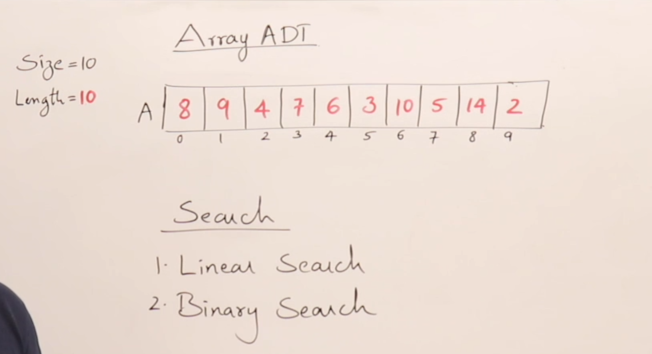 Array ADT
Size = 10
Length = 10
A 8 9 4 7 6 3 10 5 14 2
0 1 2 3 4 5 6 7 8 9
Search
1. Linear Search
2. Binary Search